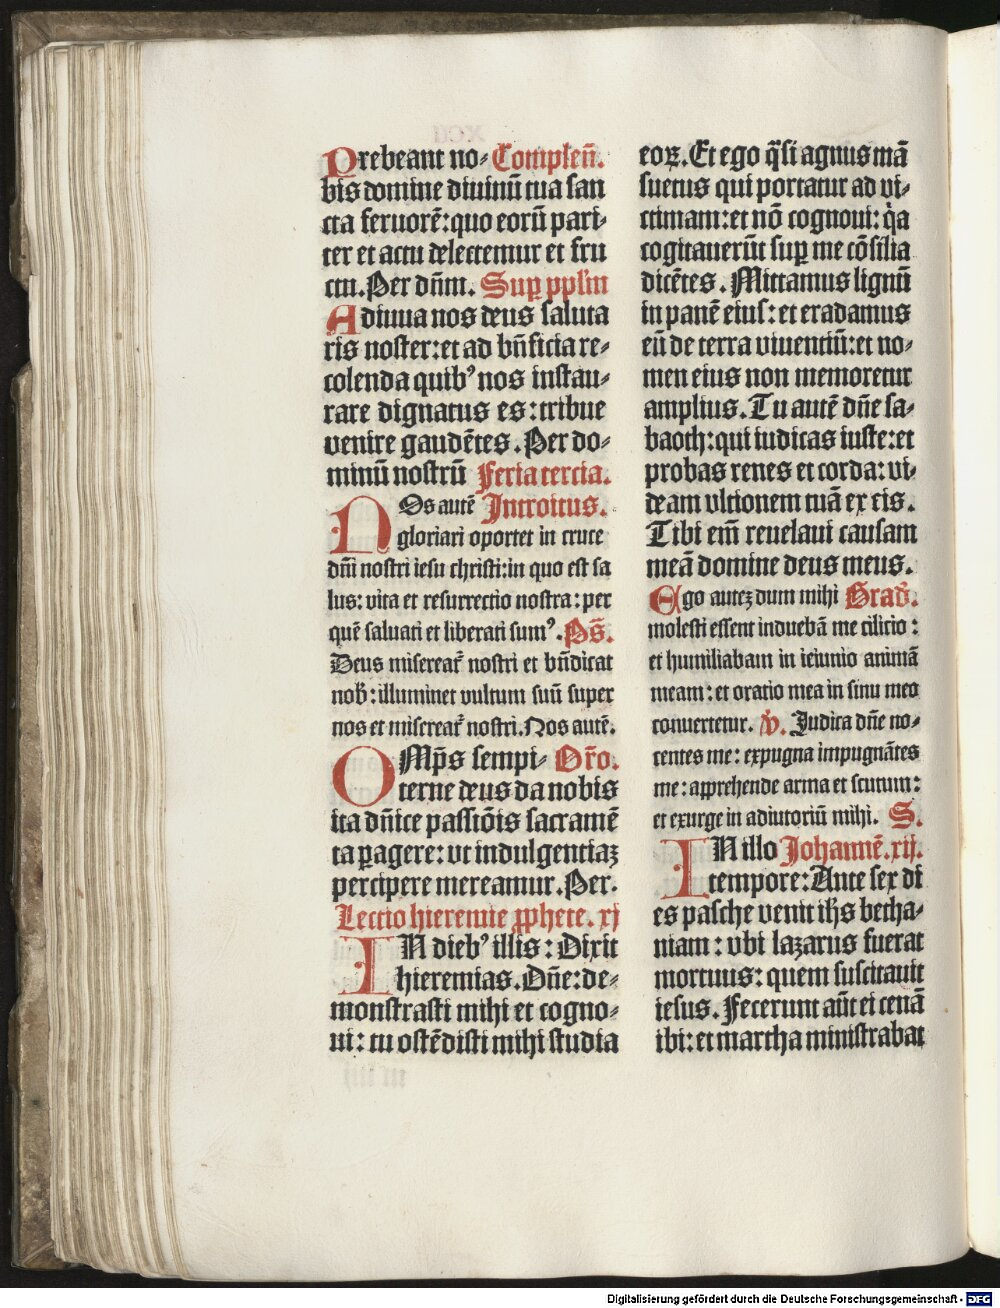 Prebeant no⸗ Complen̄.
bis domine diuinū tua san
cta feruorē: quo eorū pari⸗
ter et actu delectemur et fru
ctu. Per dn̄m. Suꝑ ppl̄m
Adiuua nos deus saluta
ris noster: et ad bn̄ficia re⸗
colenda quibꝰ nos instau⸗
rare dignatus es: tribue
venire gaudētes. Per do⸗
minū nostrū Feria tercia.
NOs autē Introitus.
gloriari oportet in cruce
dn̄i nostri iesu christi: in quo est sa
lus: vita et resurrectio nostra: per
quē saluati et liberati sumꝰ. Ps̄.
Deus misereat᷑ nostri et bn̄dicat
nob̄: illuminet vultum suū super
nos et misereat᷑ nostri. Nos autē.
OMp̄s sempi⸗ Or̄o.
terne deus da nobis
ita dn̄ice passiōis sacramē
ta ꝑagere: vt indulgentiaꝫ
percipere mereamur. Per.
Lectio hieremie ꝓphete. xj
IN diebꝰ illis: Dixit
hieremias. Dn̄e: de⸗
monstrasti mihi et cogno⸗
ui: tu ostēdisti mihi studia
eoꝝ. Et ego q̄si agnus mā
suetus qui portatur ad vi⸗
ctimam: et nō cognoui: qͥa
cogitauerūt suꝑ me cōsilia
dicētes. Mittamus lignū
in panē eius: et eradamus
eū de terra viuentiū: et no⸗
men eius non memoretur
amplius. Tu autē dn̄e sa⸗
baoth: qui iudicas iuste: et
probas renes et corda: vi⸗
deam vltionem tuā ex eis.
Tibi em̄ reuelaui causam
meā domine deus meus.
Ego auteꝫ dum mihi Grad̄.
molesti essent induebā me cilicio:
et humiliabam in ieiunio animā
meam: et oratio mea in sinu meo
conuertetur. v̄. Judica dn̄e no⸗
centes me: expugna impugnātes
me: apprehende arma et scutum:
et exurge in adiutoriū mihi. S.
IN illo Johannē. xij.
tempore: Ante sex di
es pasche venit ih̄s betha⸗
niam: vbi lazarus fuerat
mortuus: quem suscitauit
iesus. Fecerunt aūt ei cenā
ibi: et martha ministrabat
Digitalisierung gefördert durch die Deutsche Forschungsgemeinschaft - DFG